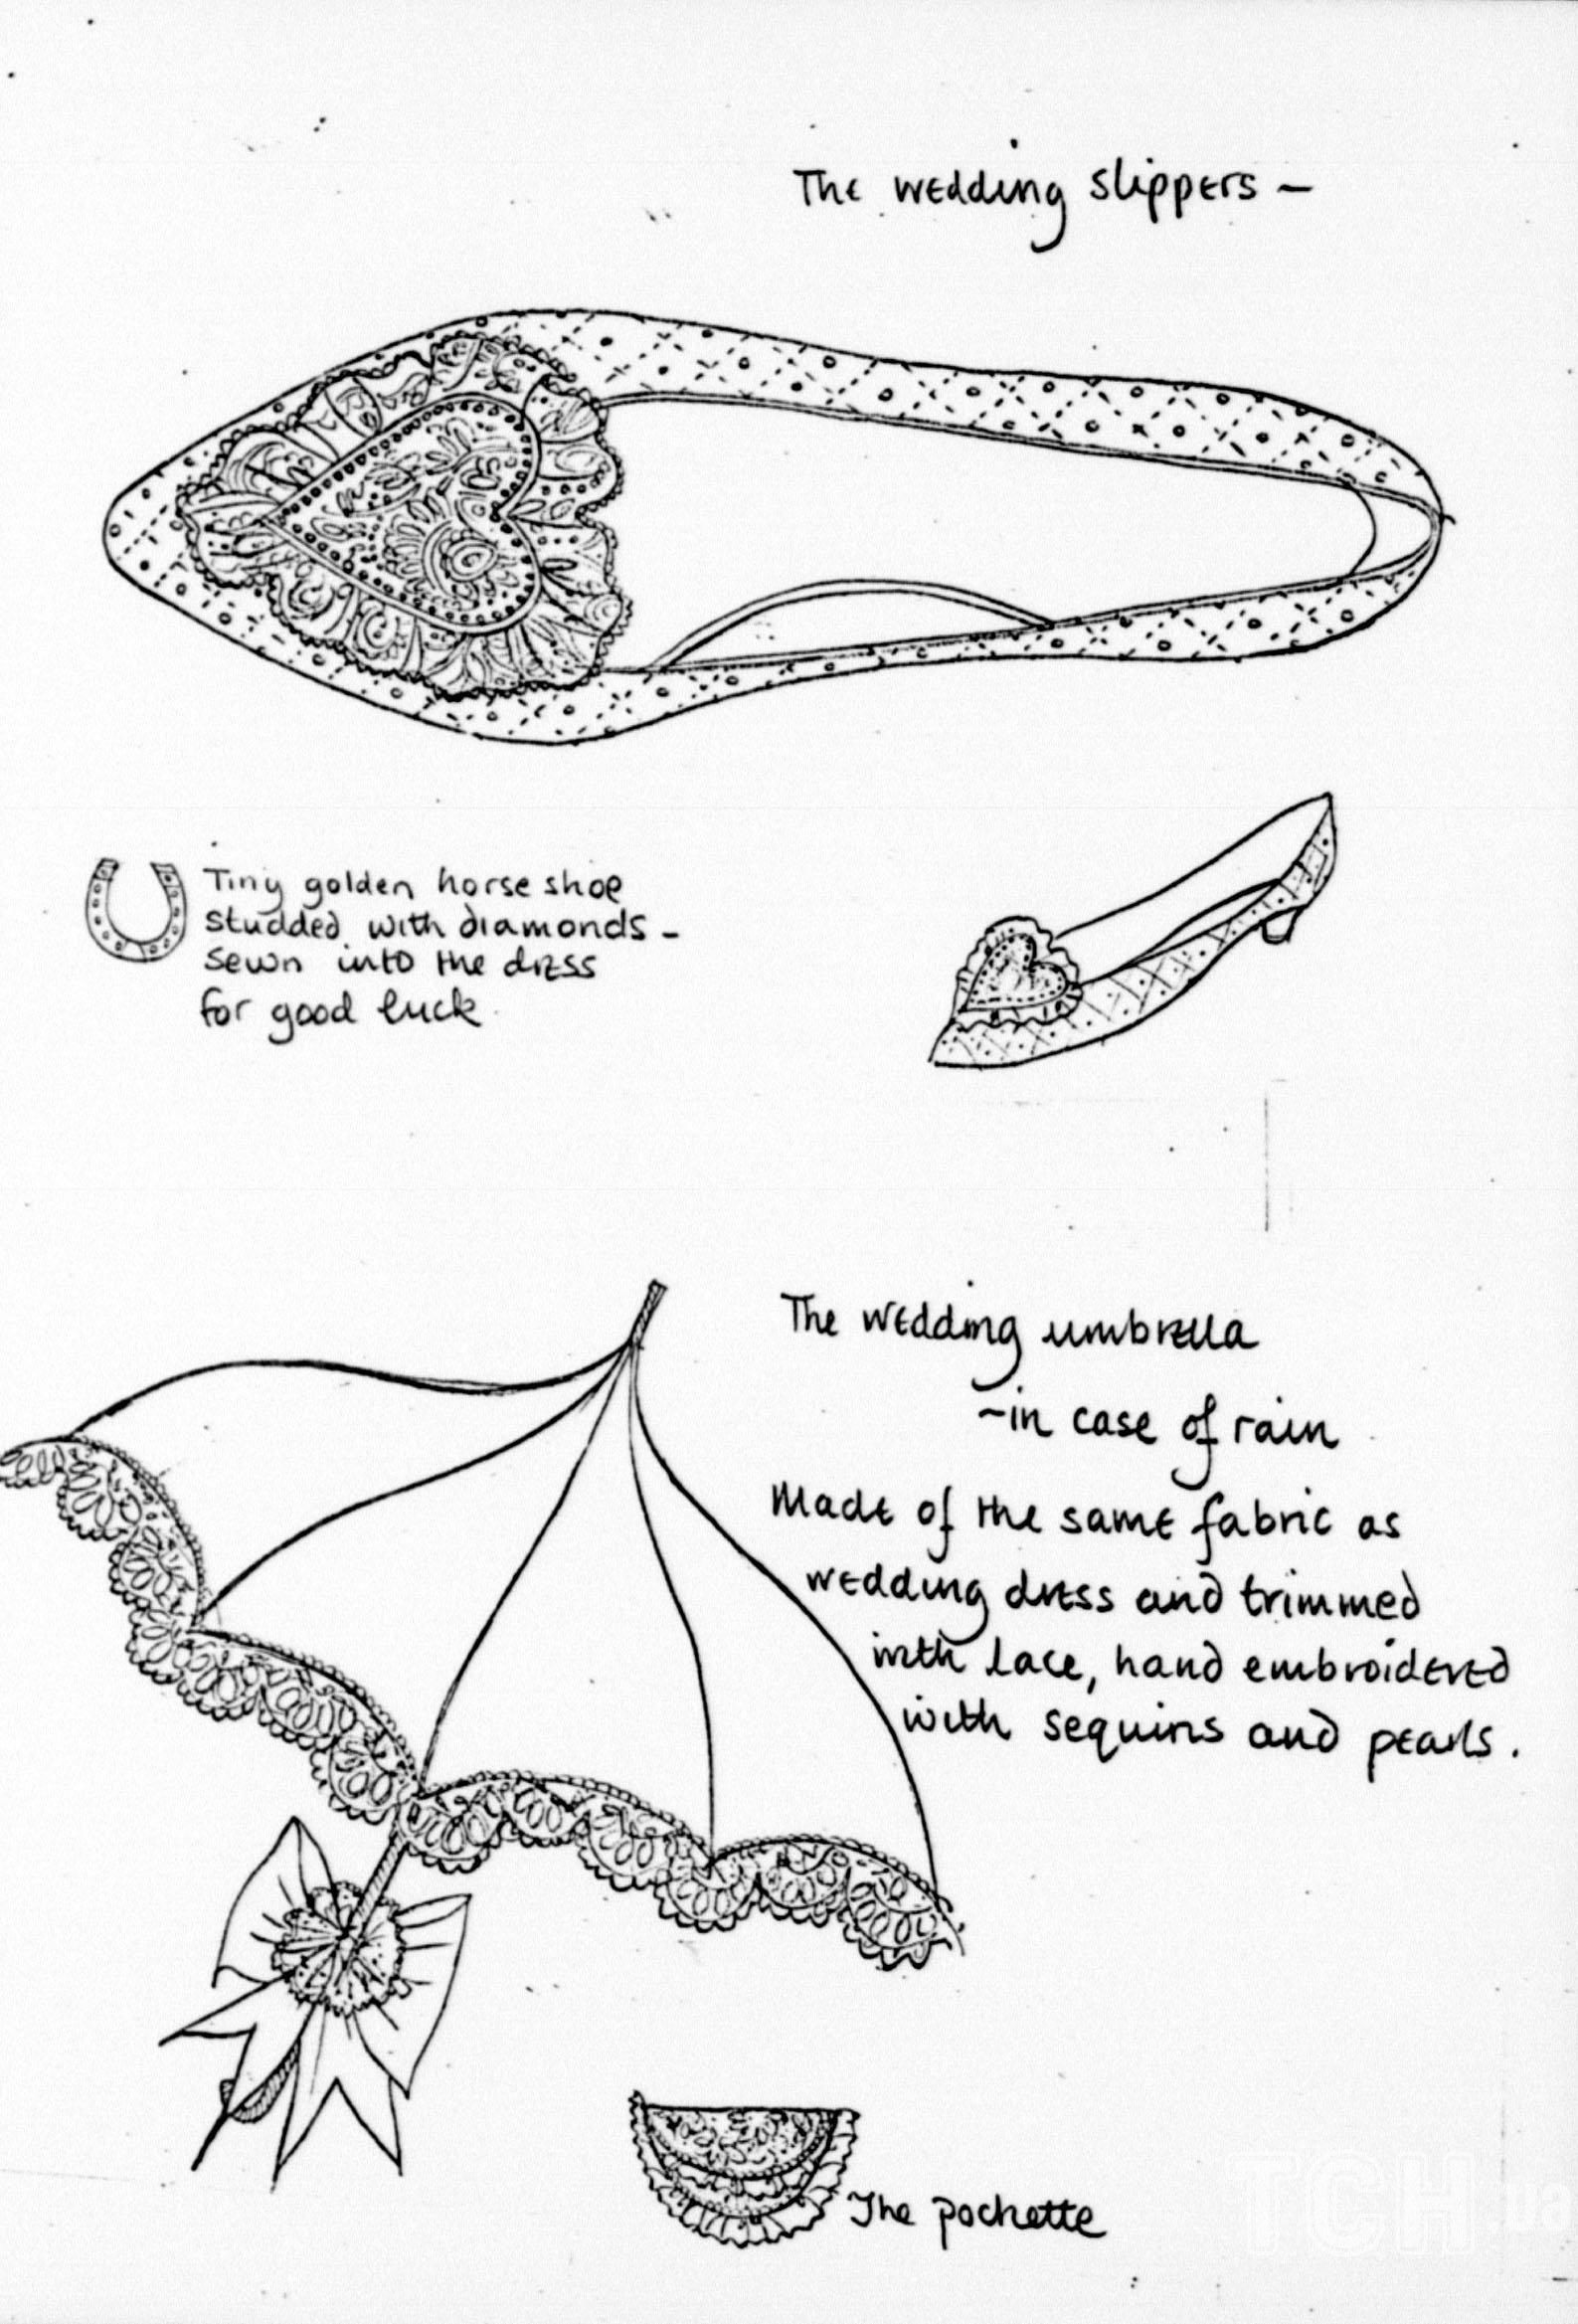 The wedding slippers –
Tiny golden horse shoe
studded with diamonds –
sewn into the dress
for good luck.
The wedding umbrella
–in case of rain
Made of the same fabric as
wedding dress and trimmed
with lace, hand embroidered
with sequins and pearls.
The pochette
ТСН.ua